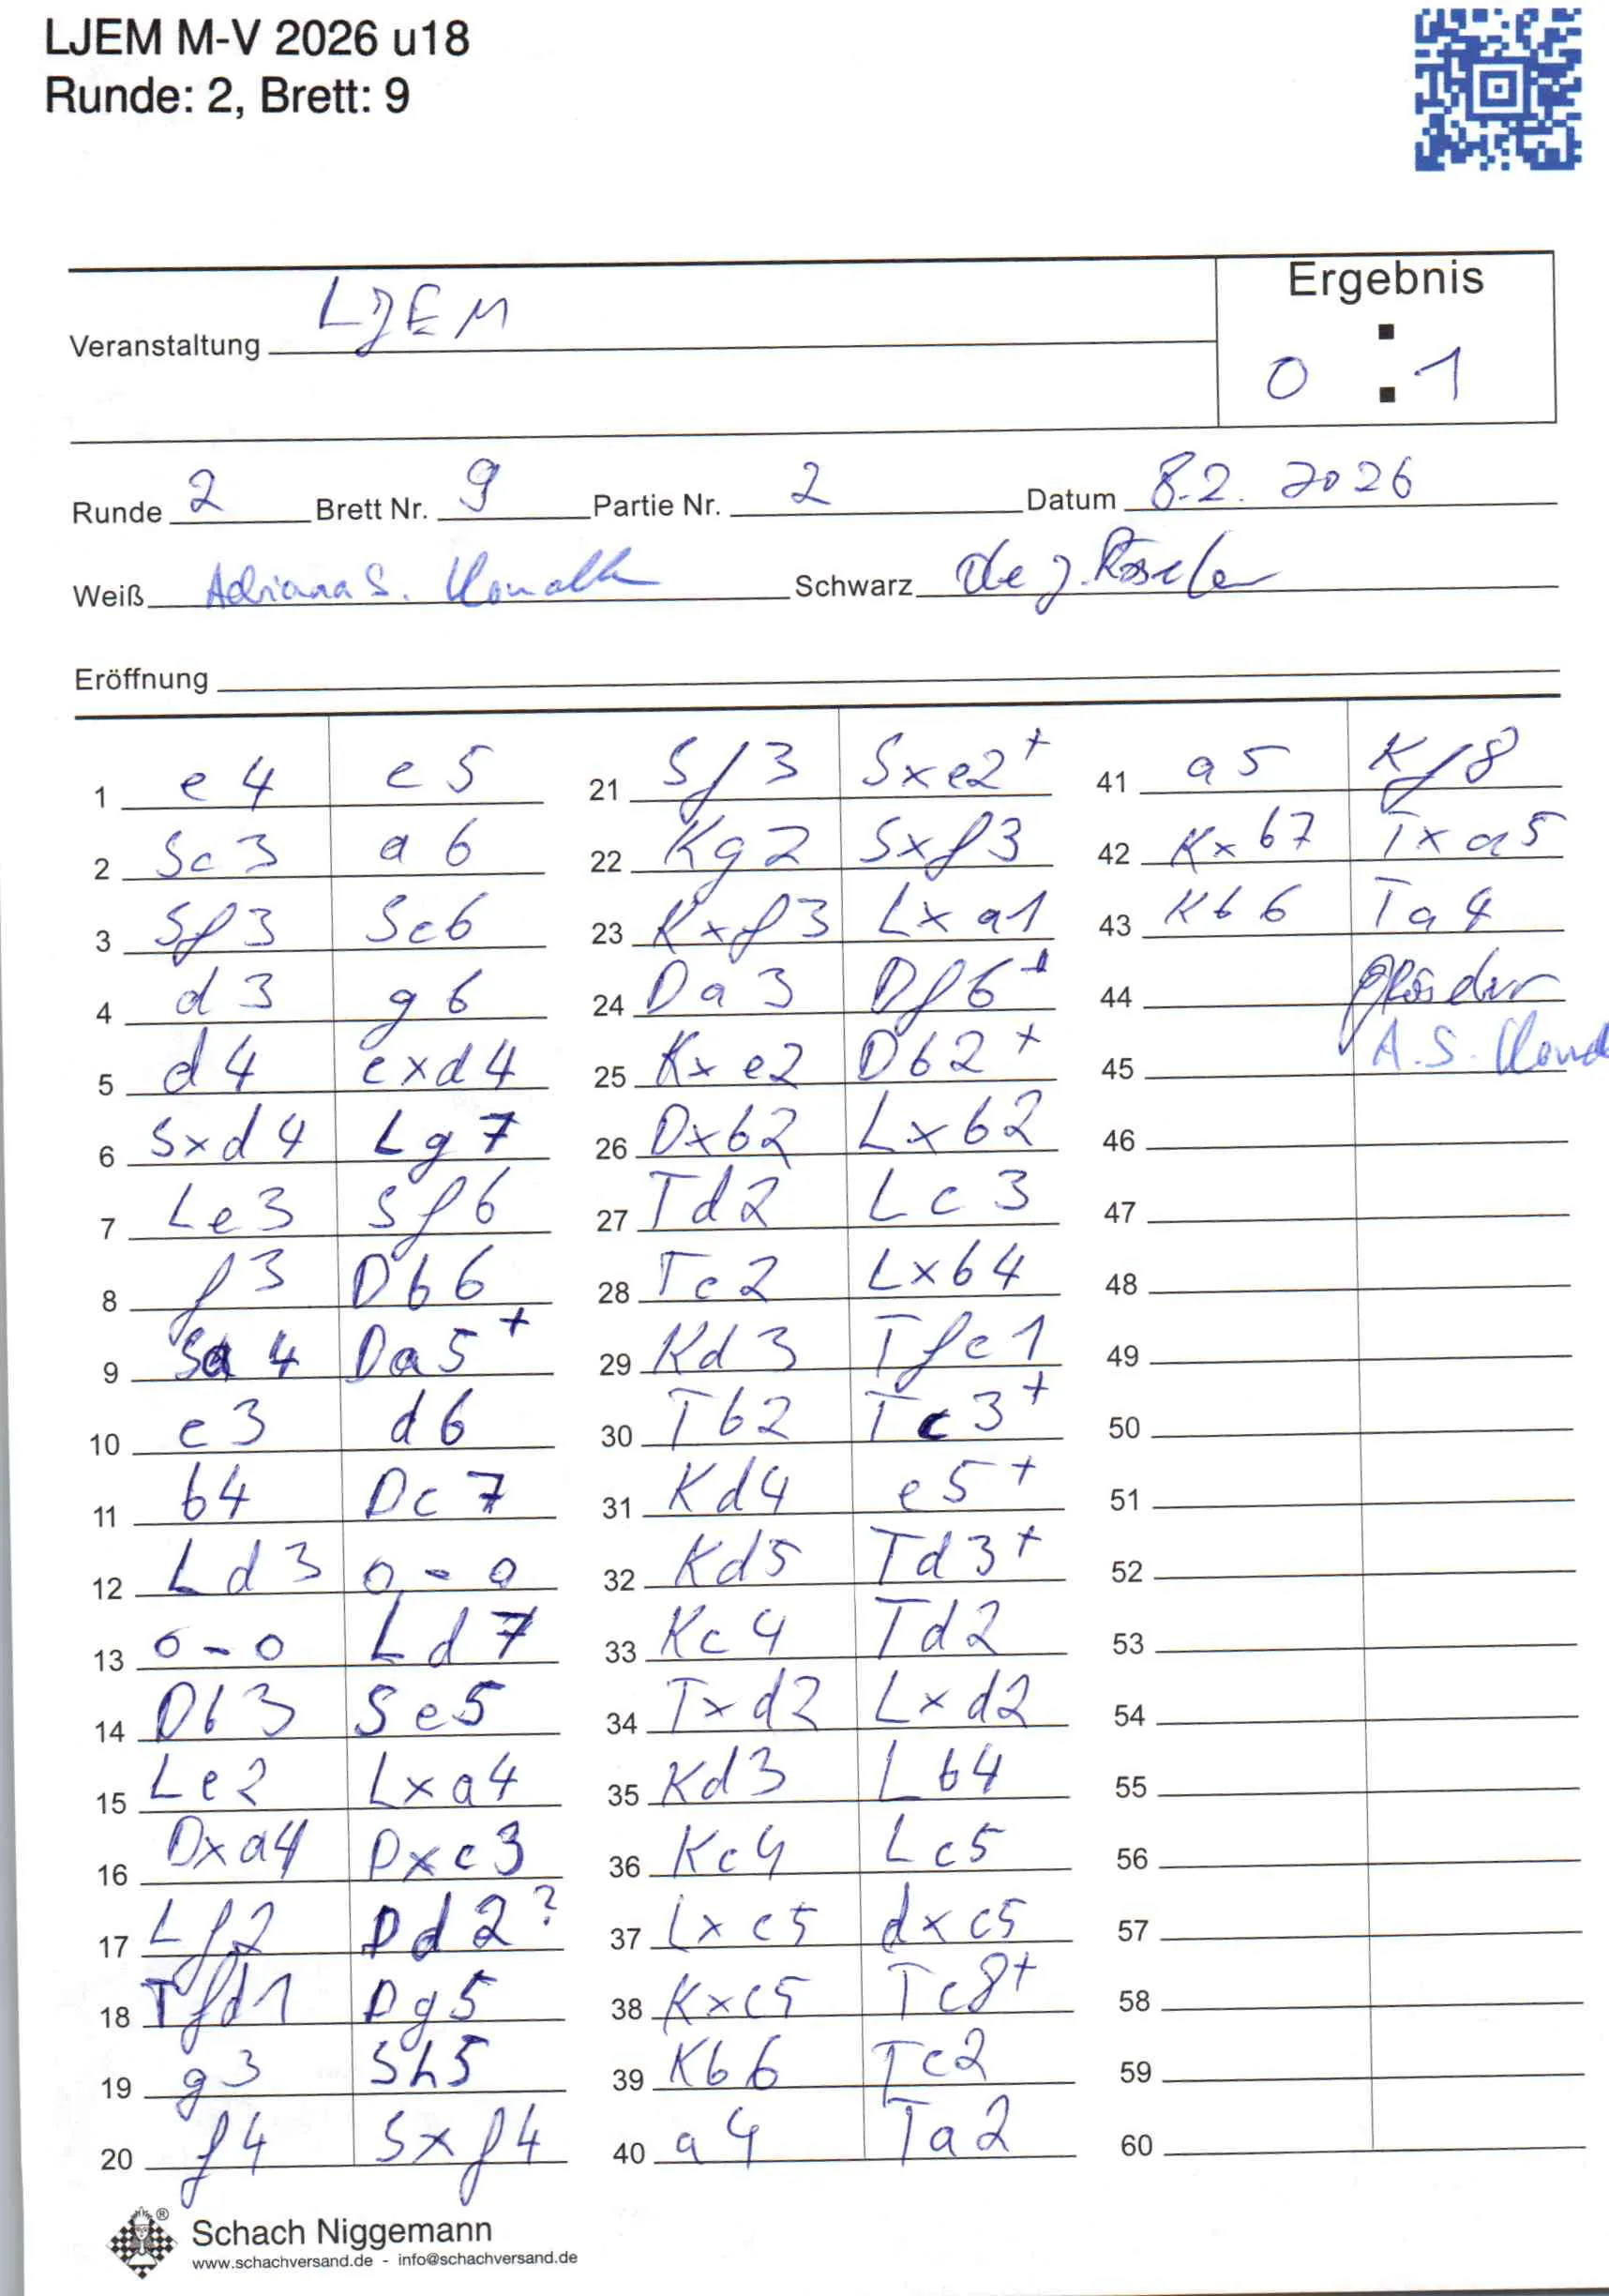 LJEM M-V 2026 u18
Runde: 2, Brett: 9
Ergebnis
Veranstaltung LJEM
0 : 1
Runde 2 Brett Nr. 9 Partie Nr. 2 Datum 8.2. 2026
Weiß Adriana S. Schwarz
Eröffnung
1 e4 e5 21 Sf3 Sxe2+ 41 a5 Kf8
2 Sc3 a6 22 Kg2 Sxf3 42 Kxb7 Txa5
3 Sf3 Sc6 23 Kxf3 Lxa1 43 Kb6 Ta4
4 d3 g6 24 Da3 Df6+ 44
5 d4 exd4 25 Kxe2 Db2+ 45 A. S.
6 Sxd4 Lg7 26 Dxb2 Lxb2 46
7 Le3 Sf6 27 Td2 Lc3 47
8 f3 Db6 28 Tc2 Lxb4 48
9 Sa4 Da5+ 29 Kd3 Tfc1 49
10 c3 d6 30 Tb2 Tc3+ 50
11 b4 Dc7 31 Kd4 e5+ 51
12 Ld3 0-0 32 Kd5 Td3+ 52
13 0-0 Ld7 33 Kc4 Td2 53
14 Db3 Se5 34 Txd2 Lxd2 54
15 Le2 Lxa4 35 Kd3 Lb4 55
16 Dxa4 Dxc3 36 Kc4 Lc5 56
17 Lf2 Dd2? 37 Lxc5 dxc5 57
18 Tfd1 Dg5 38 Kxc5 Tc8+ 58
19 g3 Sh5 39 Kb6 Tc2 59
20 f4 Sxf4 40 a4 Ta2 60
® Schach Niggemann
www.schachversand.de - info@schachversand.de